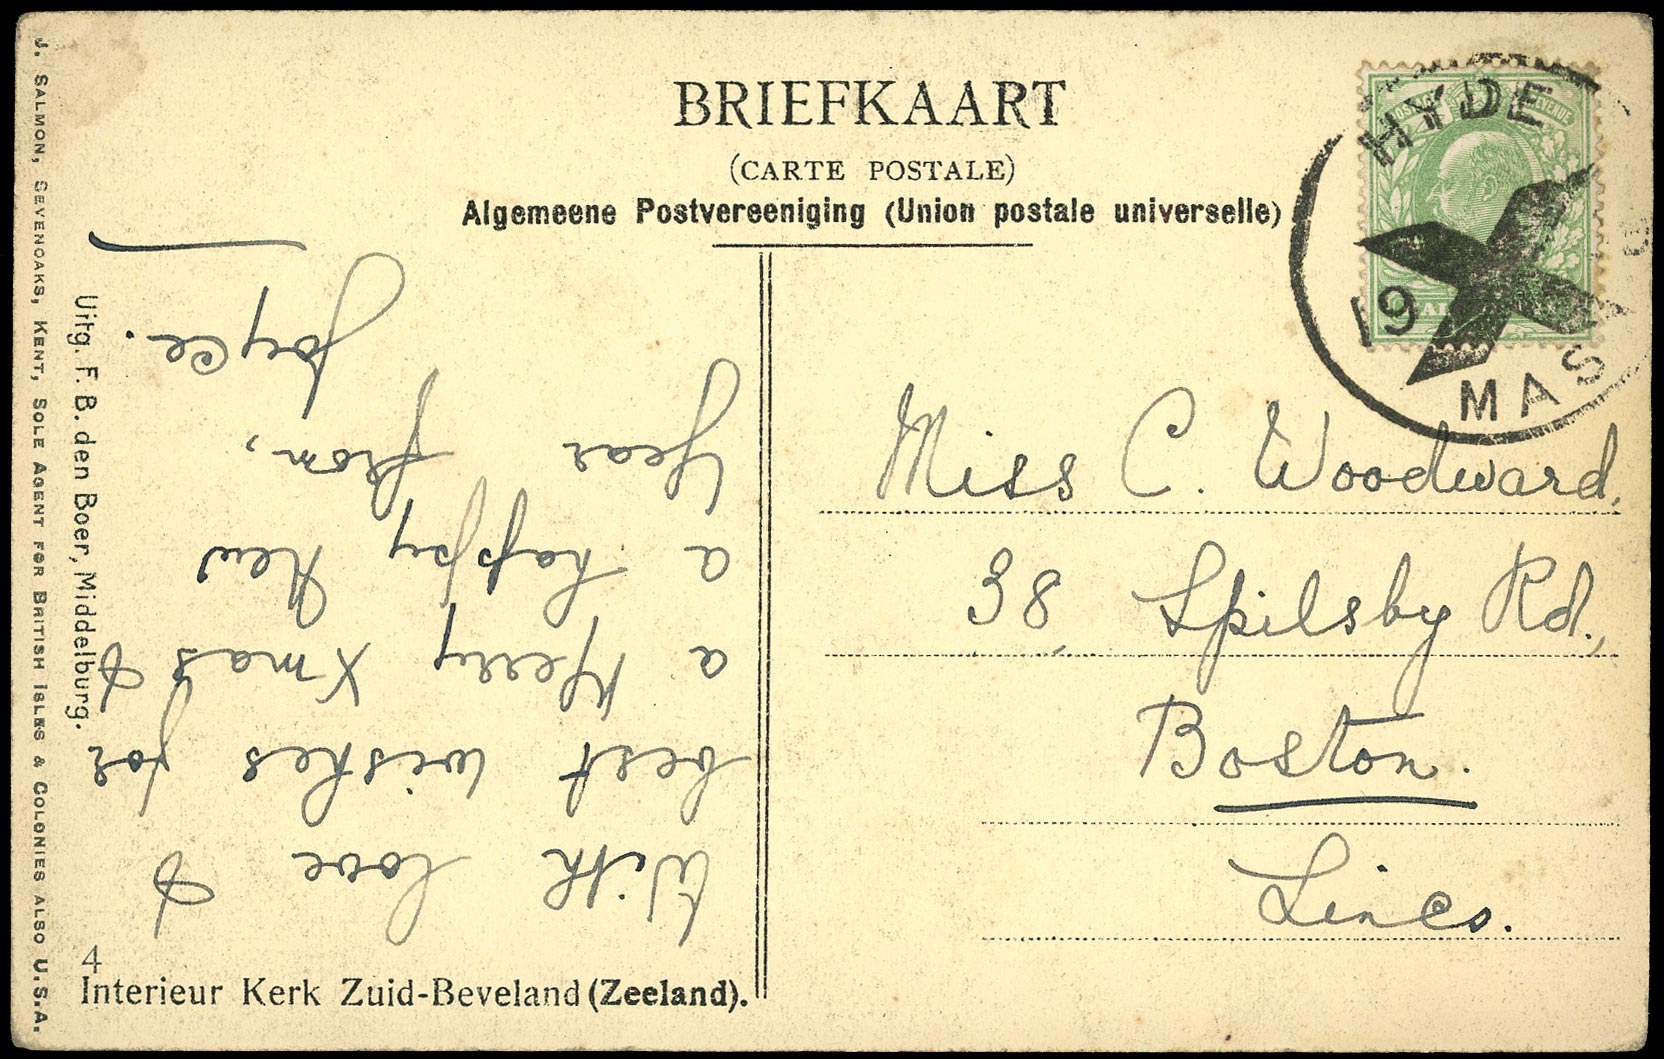 BRIEFKAART
(CARTE POSTALE)
Algemeene Postvereeniging (Union postale universelle)
HYDE
19
MAS
With love &
best wishes for
a Merry Xmas &
a happy New
Year from,
Joyce.
Miss C. Woodward,
38, Spilsby Rd.,
Boston.
Lincs.
4
Interieur Kerk Zuid-Beveland (Zeeland).
Uitg. F. B. den Boer, Middelburg.
J. SALMON, SEVENOAKS, KENT, SOLE AGENT FOR BRITISH ISLES & COLONIES ALSO U.S.A.